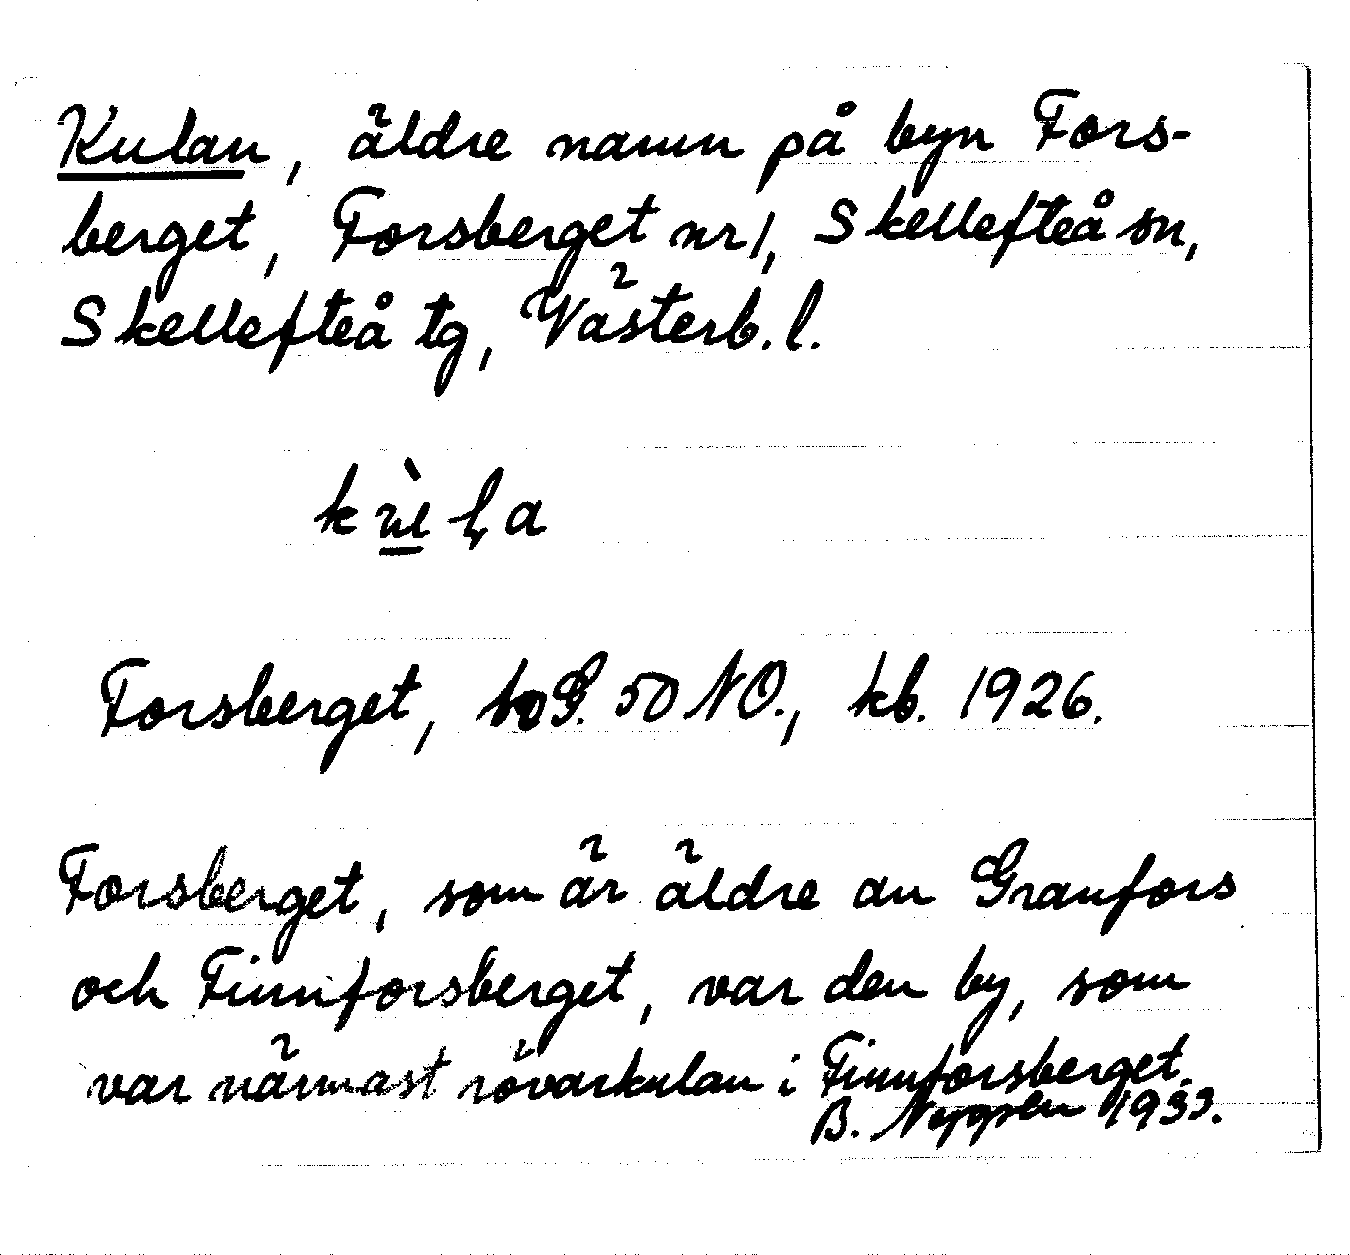 Kulan, äldre namn på byn Fors-
berget, Forsberget nr 1, Skellefteå sn,
Skellefteå tg, Västerb. l.
Forsberget, G. 50 NO., kb. 1926.
Forsberget, som är äldre an Granfors
och Finnforsberget, var den by, som
var närmast rövarkulan i Finnforsberget.
B. 1933.